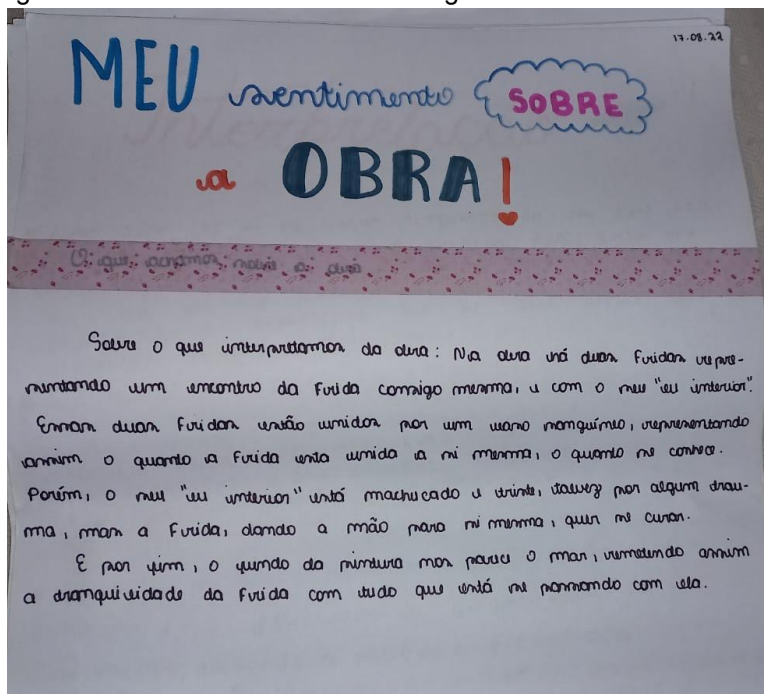 17.08.22
MEU sentimento SOBRE
a OBRA!
O que achamos sobre a obra
Sobre o que interpretamos da obra: Na obra há duas Fridas repre-
sentando um encontro da Frida consigo mesma, e com o seu "eu interior".
Essas duas Fridas estão unidas por um vaso sanguíneo, representando
assim o quanto a Frida esta unida a si mesma, o quanto se conhece.
Porém, o seu "eu interior" está machucado e triste, talvez por algum trau-
ma, mas a Frida, dando a mão para si mesma, quer se curar.
E por fim, o fundo da pintura nos parece o mar, remetendo assim
a tranquilidade da Frida com tudo que está se passando com ela.